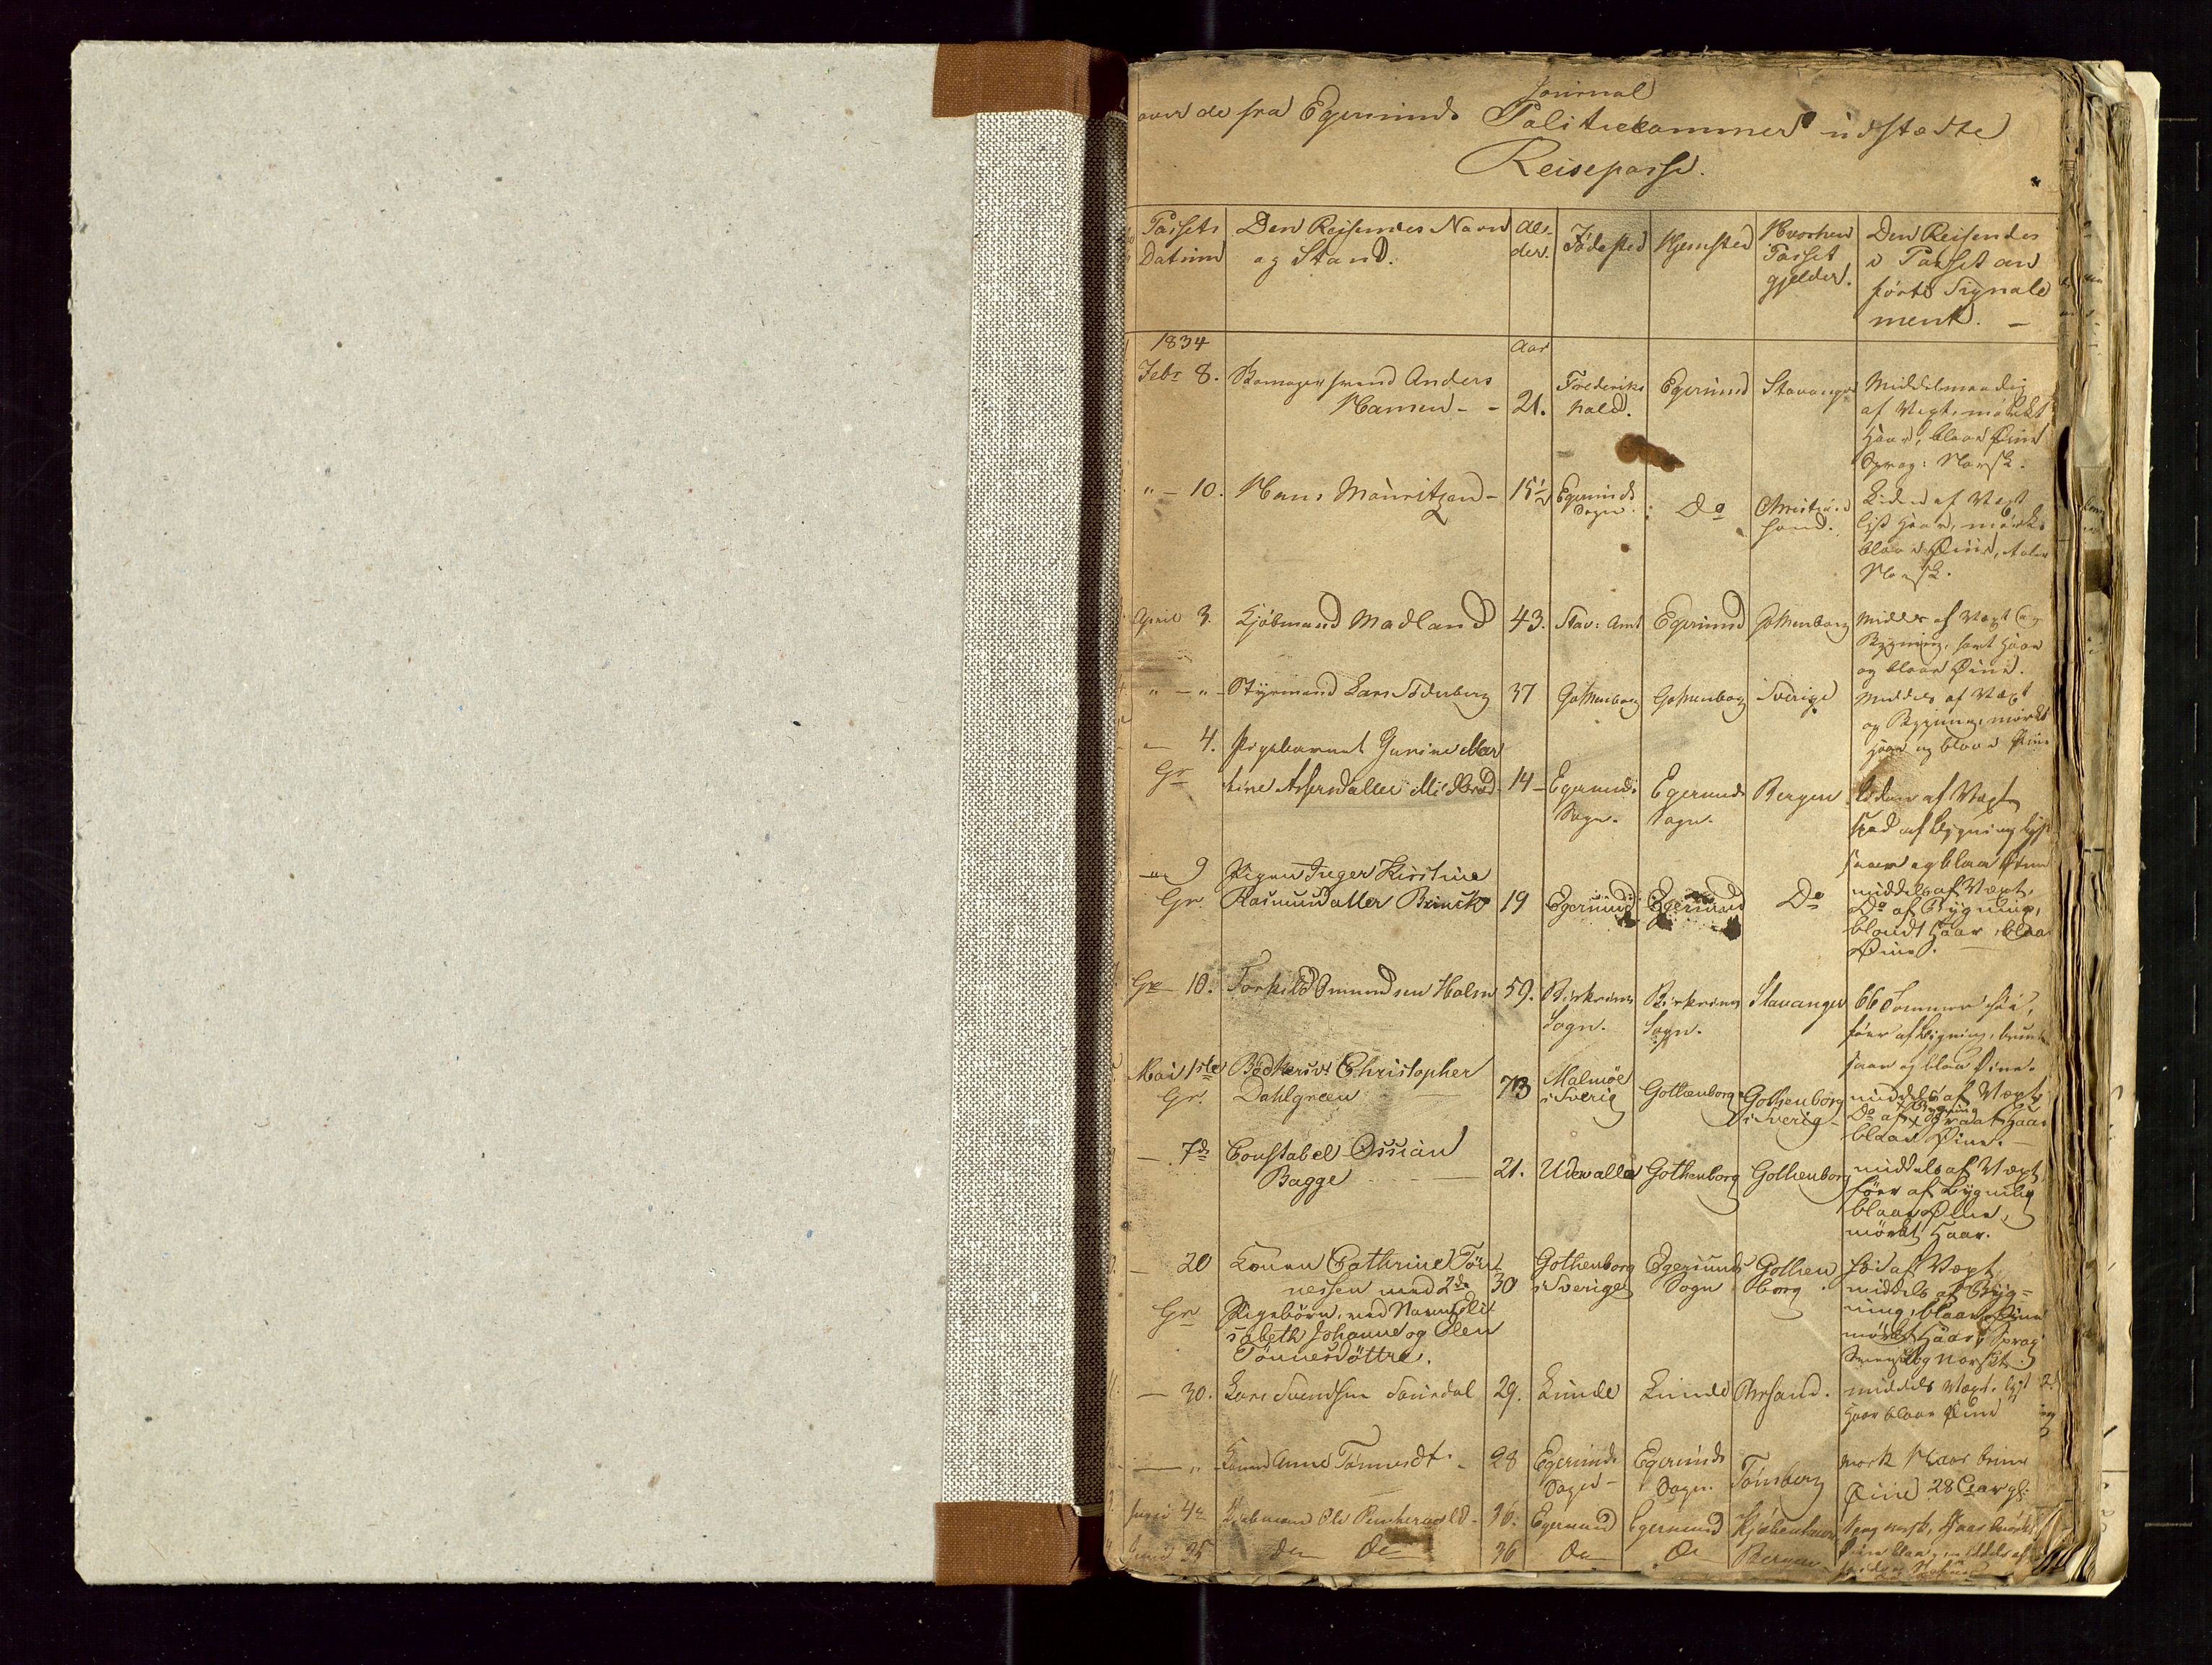 Journal
over de fra Egersunds Politiekammer udstædte
Reisepasse.
Passets Datum | Den Reisendes Navn og Stand. | Alder. | Fødested | Hjemsted | Hvorhen Passet gjelder. | Den Reisendes i Passet anførte Signalement. –
1834 | Aar
Febr 8. | Anders Hansen - - | 21. | Frederikshald. | Egersund | Stavanger | Middelmaadig af Vext, mørkt Haar, blaae Øine Sprog: Norsk.
" – 10. | Hans Mauritzen – | 15½ | Egersunds Sogn. | Do | Christiansand. | Liden af Vext lyst Haar, mørke blaae Øine, taler Norsk.
April 3. | Kjöbmand Madland | 43. | Stav: Amt | Egersund | Gothenborg | Middels af Vext og Bygning, sort Haar og blaae Øine.
" – " – | Styrmand Lars Söderberg | 37 | Gothenborg | Gothenborg | Sverige | Middels af Vext og Bygning, mørkt Haar og blaae Øine
– 4. Gr | Pigebarnet Gurine Martine Assersdatter Midbrød | 14 – | Egersunds Sogn. | Egersunds Sogn. | Bergen | liden af Vext, spæd af Bygning lyst Haar og blaa Øine
– 9 Gr. | Pigen Inger Kirstine Rasmusdatter Brinck | 19 | Egersund | Egersund | Do | middels af Vext, Do af Bygning, blondt Haar, blaa Øine.
Gr 10. | Torkild Omundsen Holm | 59. | Birkrims Sogn. | Birkrims Sogn. | Stavanger | 66 Tommer høi, før af Bygning, bruunt Haar og blaa Øine.
Mai 1ste Gr. | Bødkersv: Christopher Dahlgreen | 73 | Malmöe i Sverig | Gothenborg | Gothenborg i Sverig – | middels af Vext, Do af Bygning graat Haar blaae Øine. –
– 7de | Constabel Ossian Bagge | 21. | Udevalla | Gothenborg | Gothenborg | middels af Vext, före af Bygning blaae Øine, mørkt Haar.
– 20 Gr | Konen Cathrine Tönnessen med 2de Pigebörn, ved Navn Elisabeth Johanne og Olene Tönnesdöttre. | 30 | Gothenborg i Sverige | Egersunds Sogn | Gothenborg. | høi af Vext, middels af Bygning, blaae Øine mørkt Haar, Sprog Svensk og Norskt.
– 30. | Lars Svendsen | 29. | Lunde | Lunde | Chrsand. | middels Vext, lyst Haar blaae Øine
– " | Konen Anne Tönnesdt. | 28 | Egersunds Sogn – | Egersunds Sogn. | Tönsberg | mørk Haar brune Øine 28 Aar gl:
Juni 4de | Kjöbmand Ole | 36. | Egersund | Egersund | Kjøbenhavn | Sprog norsk, Haar mørkt Øine blaa, middels af
Juni 25 | do do | 36 | do | do | Bergen